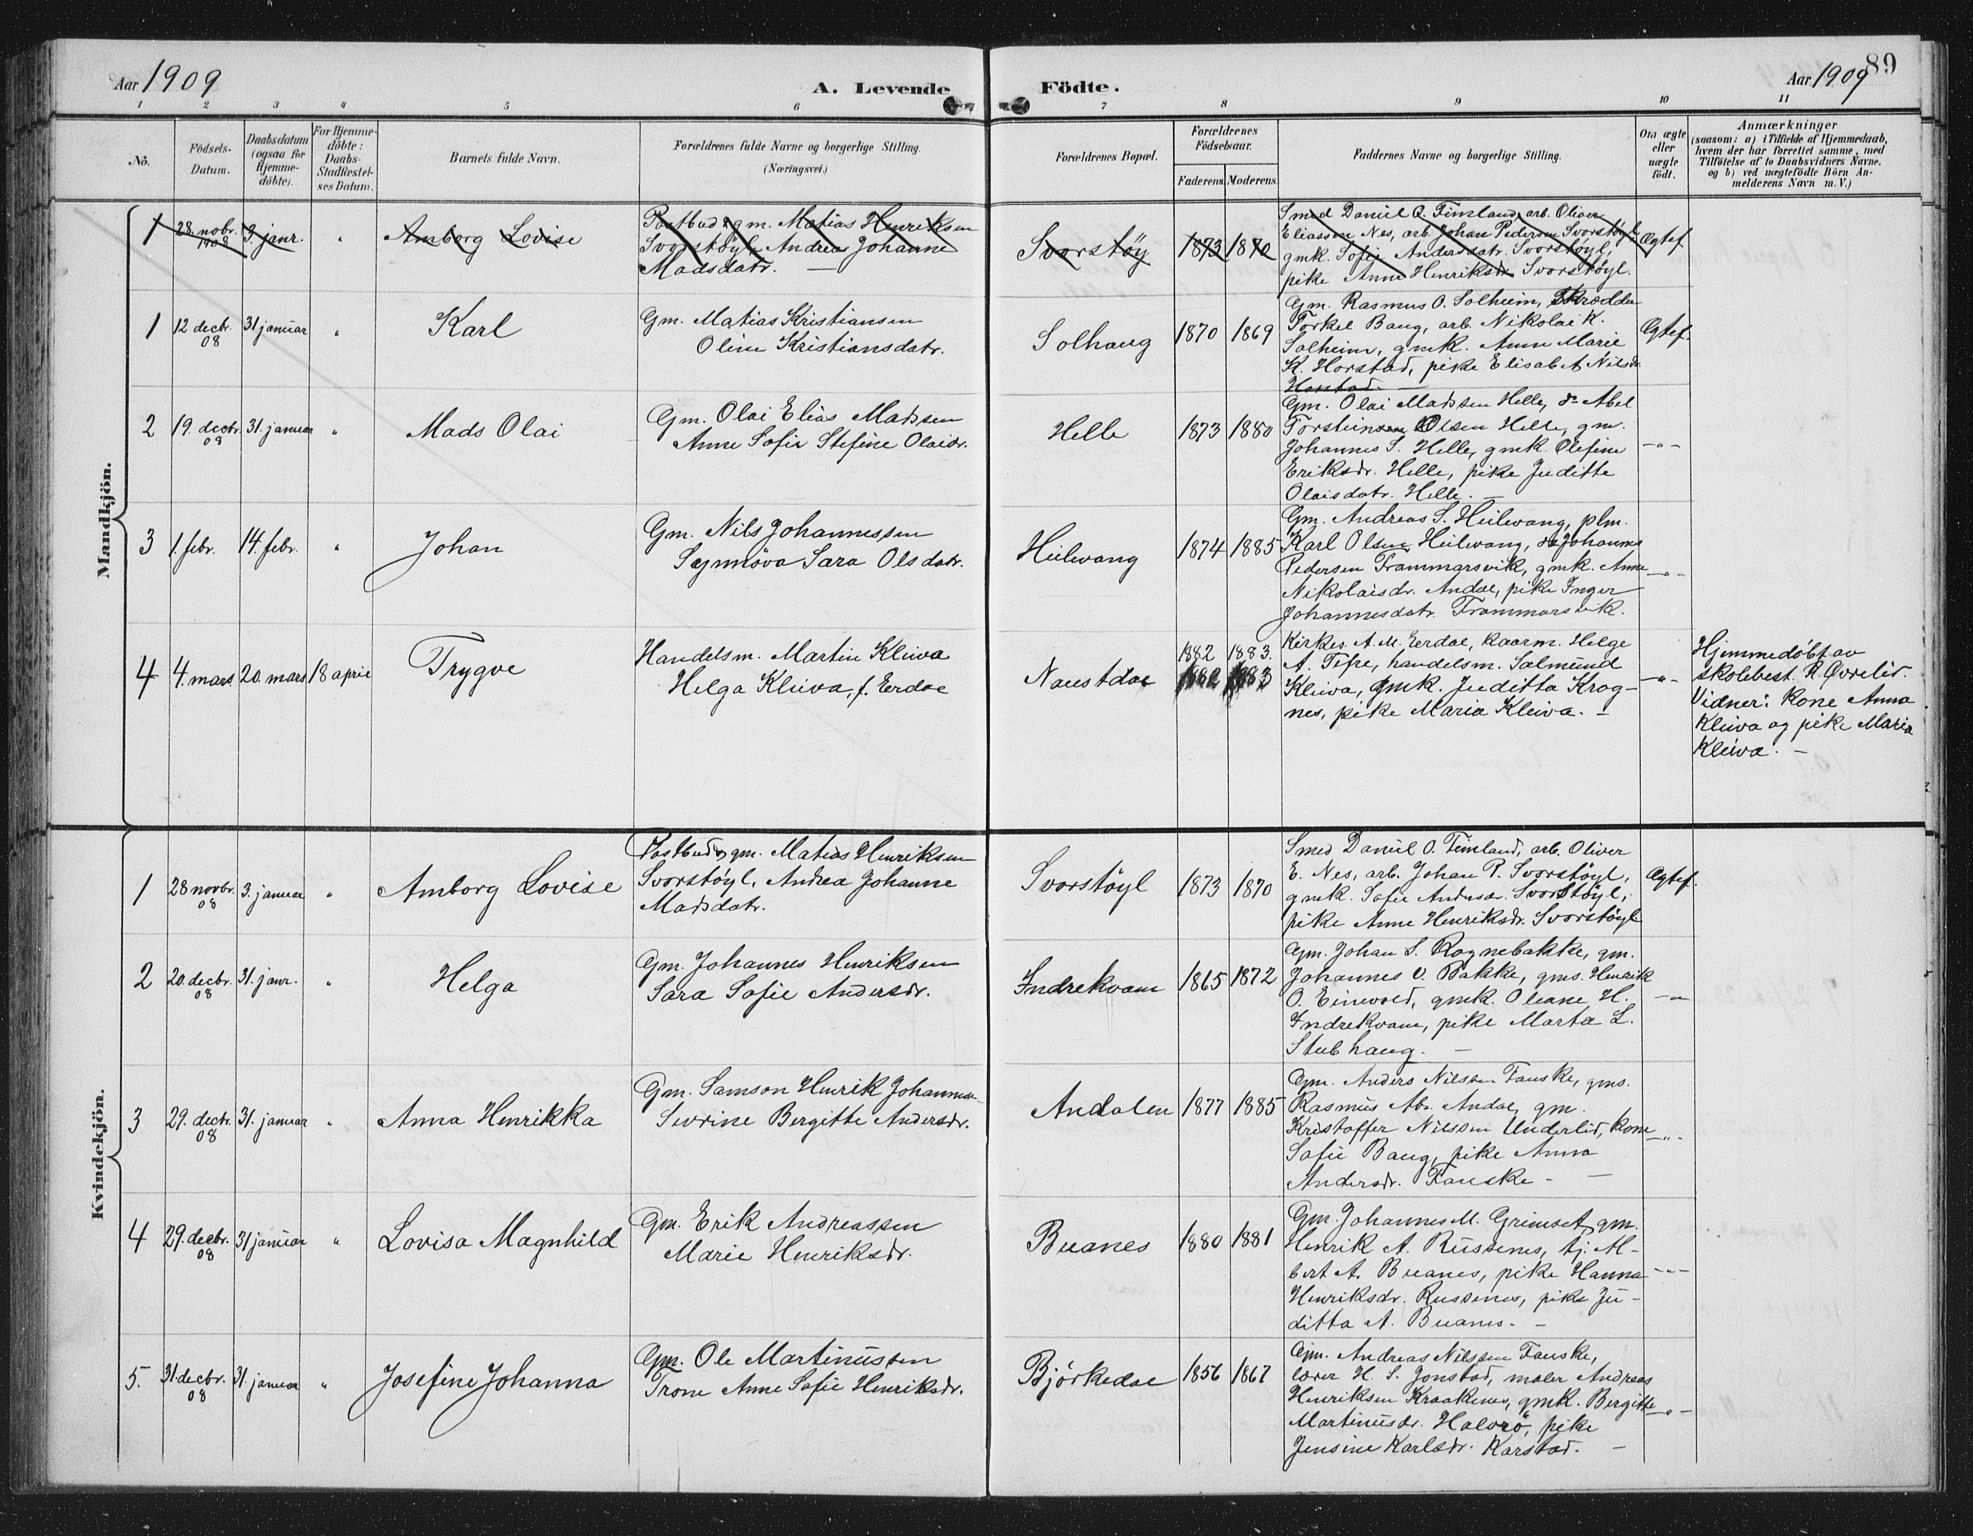 Aar 1909
A. Levende
Födte.
Aar 1909
89
1 2 3 4 5 6 7 8 9 10 11
No.
Födsels-
Datum.
Daabsdatum
(ogsaa for
Hjemme-
döbte).
For Hjemme-
döbte:
Daabs-
Stadfæstel-
ses Datum.
Barnets fulde Navn.
Forældrenes fulde Navne og borgerlige Stilling.
(Næringsvei.)
Forældrenes Bopæl.
Forældrenes
Födselsaar.
Faderens. Moderens.
Faddernes Navne og borgerlige Stilling.
Om ægte
eller
uægte
födt.
Anmærkninger
(saasom: a) i Tilfælde af Hjemmedaab,
hvem der har forrettet samme, med
Tilföielse af to Daabsvidners Navne.
og b) ved uægtefödte Börn An-
melderens Navn m. V.)
Mandkjön.
1
28 novbr.
1908
3. janr.
"
Amborg Lovise
Postbud & gm. Matias Henriksen
Svorstøyl, Andrea Johanne
Madsdatr. —
Svorstøy
1873 1870
Smed Daniel O. Timland, arb. Oliver
Eliassen Nes, arb. Johan Pedersen Svorstøyl,
gmk. Sofie Andersdatr. Svorstøyl,
pike Anne Henriksdr. Svorstøyl.
Ægtef.
1
12 decbr.
08
31 januar
"
Karl
Gm. Matias Kristiansen
Oline Kristiansdatr.
Solhaug
1870 1869
Gm. Rasmus O. Solheim, Skrædder
Torkel Baug, arb. Nikolai K.
Solheim, gmk. Anne Marie
K. Horstad, pike Elisab. A. Nilsdr.
Horstad. —
Ægtef.
2
19. decbr.
08
31. januar
"
Mads Olai
Gm. Olai Elias Madssen
Anne Sofie Stefine Olaisdr.
Helle
1873 1880
Gm. Olai Madssen Helle, do Abel
Torstein Olsen Helle, gm.
Johannes S. Helle, gmk. Olefine
Eriksdr. Helle, pike Juditte
Olaisdatr. Helle. —
—"—
3
1. febr.
14. febr.
"
Johan
Gm. Nils Johannessen
Synnøva Sara Olsdatr.
Heilevang
1874 1885
Gm. Andreas S. Heilevang, plm.
Karl Olsen Heilevang, do Johannes
Pedersen Frammarsvik, gmk. Anne
Nikolaisdr. Andal, pike Inger
Johannesdatr. Frammarsvik.
—"—
4
4. mars
20. mars
18 april
Trygve
Handelsm. Martin Kleiva
Helga Kleiva, f. Erdal
Naustdal
1882 1883.
1882 1883
Kirkes. A. M. Erdal, kaarm. Helge
A. Tefre, handelsm. Salmund
Kleiva, gmk. Juditta Krog-
nes, pike Maria Kleiva. —
—"—
Hjemmedøbt av
skolebest. R. Øvrelid.
Vidner: kone Anna
Kleiva og pike Maria
Kleiva. —
Kvindekjön.
1
28 novbr.
08
3. januar
"
Amborg Lovise
Postbud & gm. Matias Henriksen
Svorstøyl, Andrea Johanne
Madsdatr.
Svorstøyl
1873 1870
Smed Daniel O. Timland, arb. Oliver
E. Nes, arb. Johan P. Svorstøyl,
gmk. Sofie Andersdr. Svorstøyl,
pike Anne Henriksdr. Svorstøyl
Ægtef.
2
20. decbr.
08
31. janr.
"
Helga
Gm. Johannes Henriksen
Sara Sofie Andersdr.
Indrekvam
1865 1872
Gm. Johan S. Rognebakke, gm.
Johannes O. Bakke, gms. Henrik
O. Einevold, gmk. Oleane H.
Indrekvam, pike Marta L.
Stubhaug. —
—"
3
29. decbr.
08
31. januar
"
Anna Henrikka
Gm. Samson Henrik Johannes-
Sevrine Bergitte Andersdr.
Andalen
1877 1885
Gm. Anders Nilssen Fauske, gms.
Rasmus Abr. Andal, gm.
Kristoffer Nilssen Underlid, kone
Sofie Baug, pike Anna
Andersdr. Fauske —
—"—
4
29. decbr.
08
31 januar
"
Lovisa Magnhild
Gm. Erik Andreassen
Marie Henriksdr.
Buanes
1880 1881
Gm. Johannes M. Grimset, gm.
Henrik A. Russenes, tj. Al-
bert A. Buanes, pike Hanna
Henriksdr. Russenes, pike Ju-
ditta A. Buanes. —
—"—
5.
31 decbr.
08
31. januar
"
Josefine Johanna
Gm. Ole Martinussen
Trone Anne Sofie Henriksdr.
Bjørkedal
1856 1867
Gm. Andreas Nilssen Fauske,
lærer H. S. Jonstad, maler Andreas
Henriksen Kraakenes, gmk. Bergitte
Martinusdr. Halvrö, pike
Jensine Karlsdr. Karstad. —
—"—